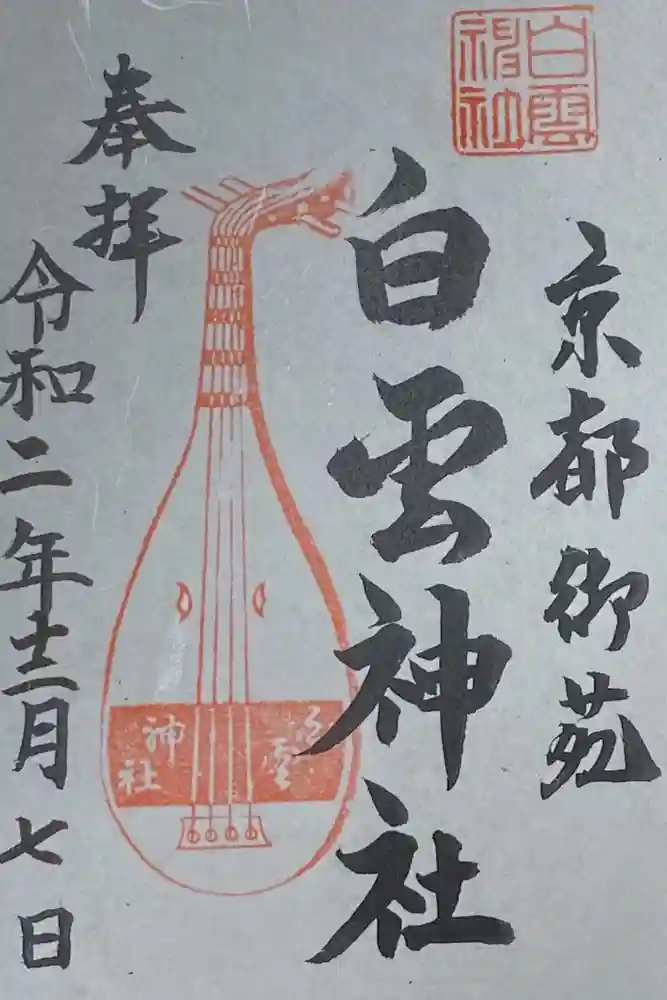 白雲
神社
京都御苑
白雲神社
白雲
神社
奉拝
令和二年十二月七日